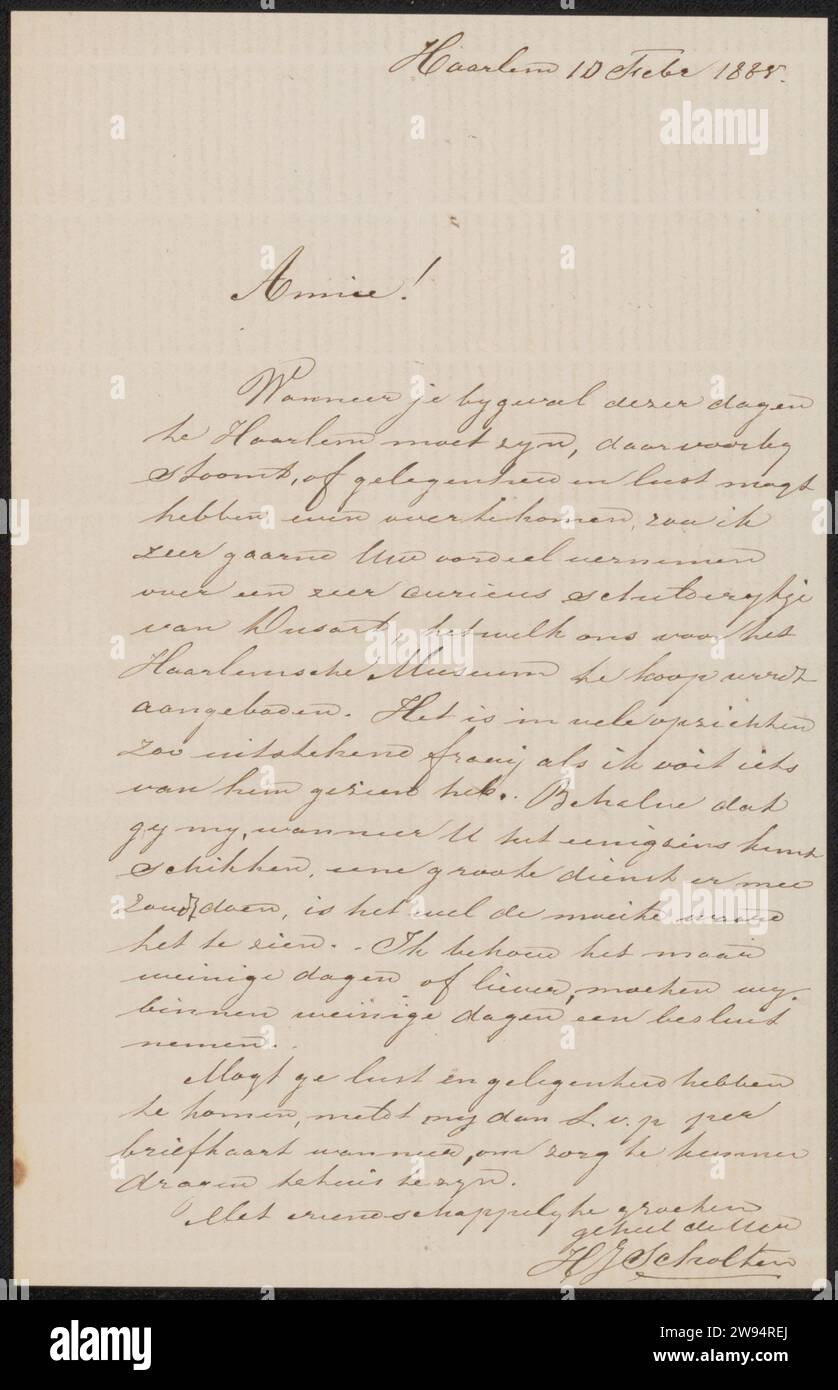 Haarlem 10 Febr 1888.
Amice!
Wanneer je bygeval dezer dagen
te Haarlem moet zyn, daar voorby
stoomt, of gelegenheid en lust mogt
hebben even over te komen, zou ik
zeer gaarne Uw oordeel vernemen
over een zeer curieus schilderytje
van Dusart, hetwelk ons voor het
Haarlemsche Museum te koop werdt
aangeboden. Het is in vele opzichten
zoo uitstekend fraaij als ik ooit iets
van hem gezien heb. Behalve dat
gy my, wanneer U het eenigzins kunt
schikken, eene groote dienst er mee
zoudt doen, is het wel de moeite waard
het te zien. - Ik behoud het maar
weinige dagen of liever, moeten wy
binnen weinige dagen een besluit
nemen.
Mogt ge lust en gelegenheid hebben
te komen, meldt my dan s.v.p per
briefkaart wanneer, om zorg te kunnen
dragen tehuis te zyn.
Met vriendschappelyke groeten
geheel de Uwe
HJ Scholten
alamy
alamy
Image ID: 2W94REJ
www.alamy.com